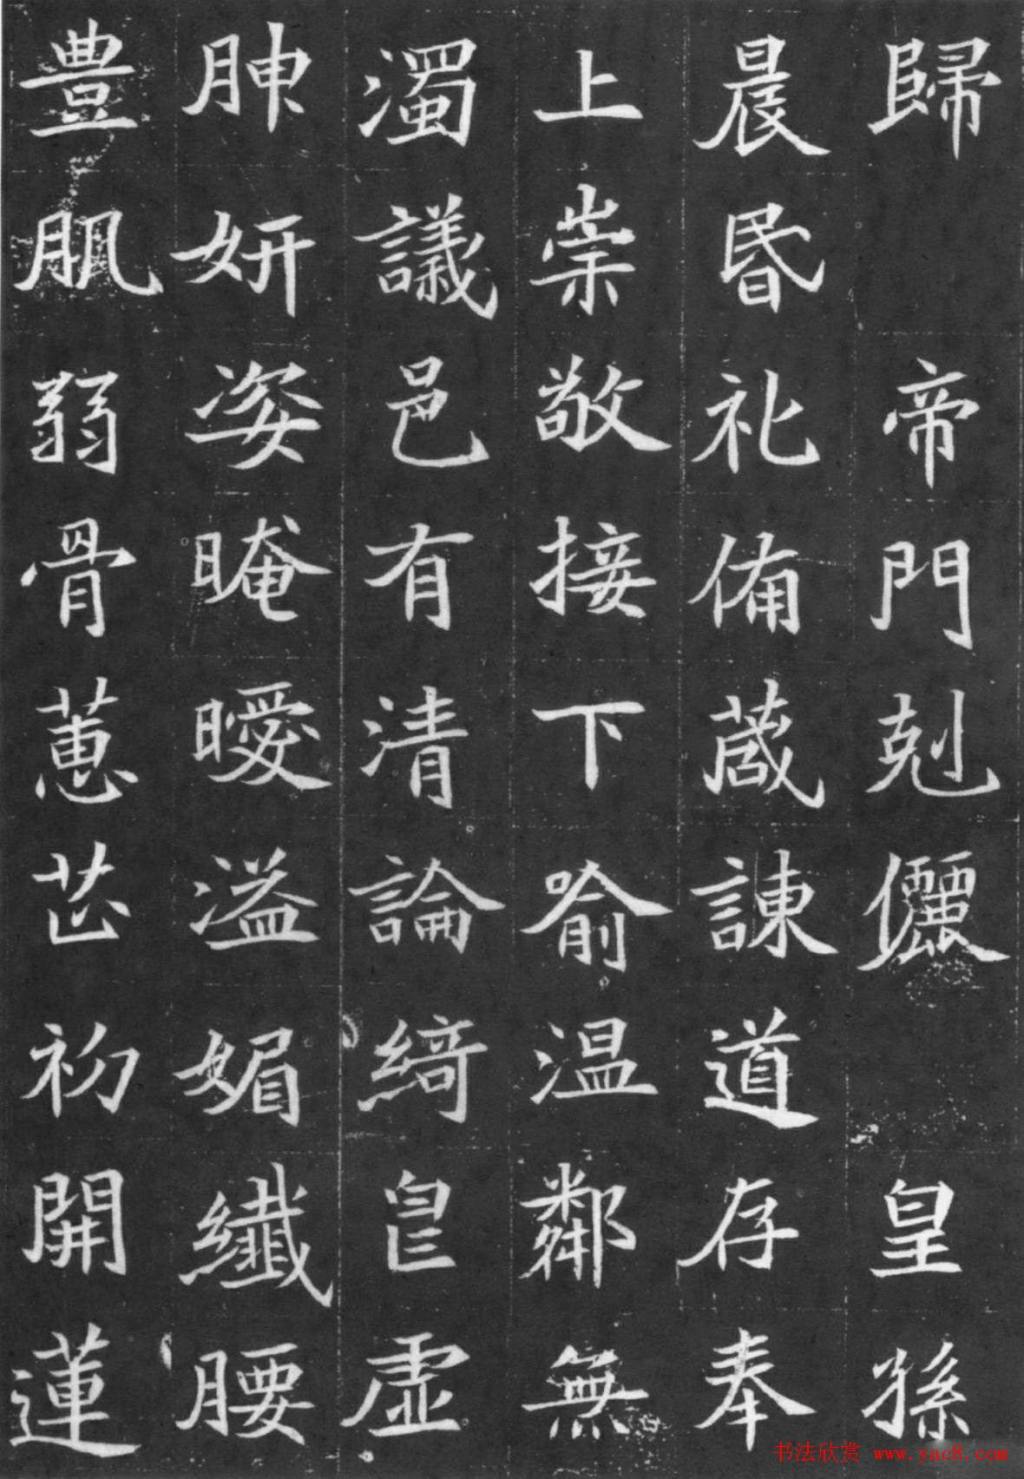 歸　帝門剋儷　皇孫
晨昬礼俻蔵諫道存奉
上崇敬接下喻温鄰無
濁議邑有清論綺皃虚
妍姿晻曖溢媚纎腰
豊肌弱骨蕙芷初開蓮
书法欣赏 www.yac8.com